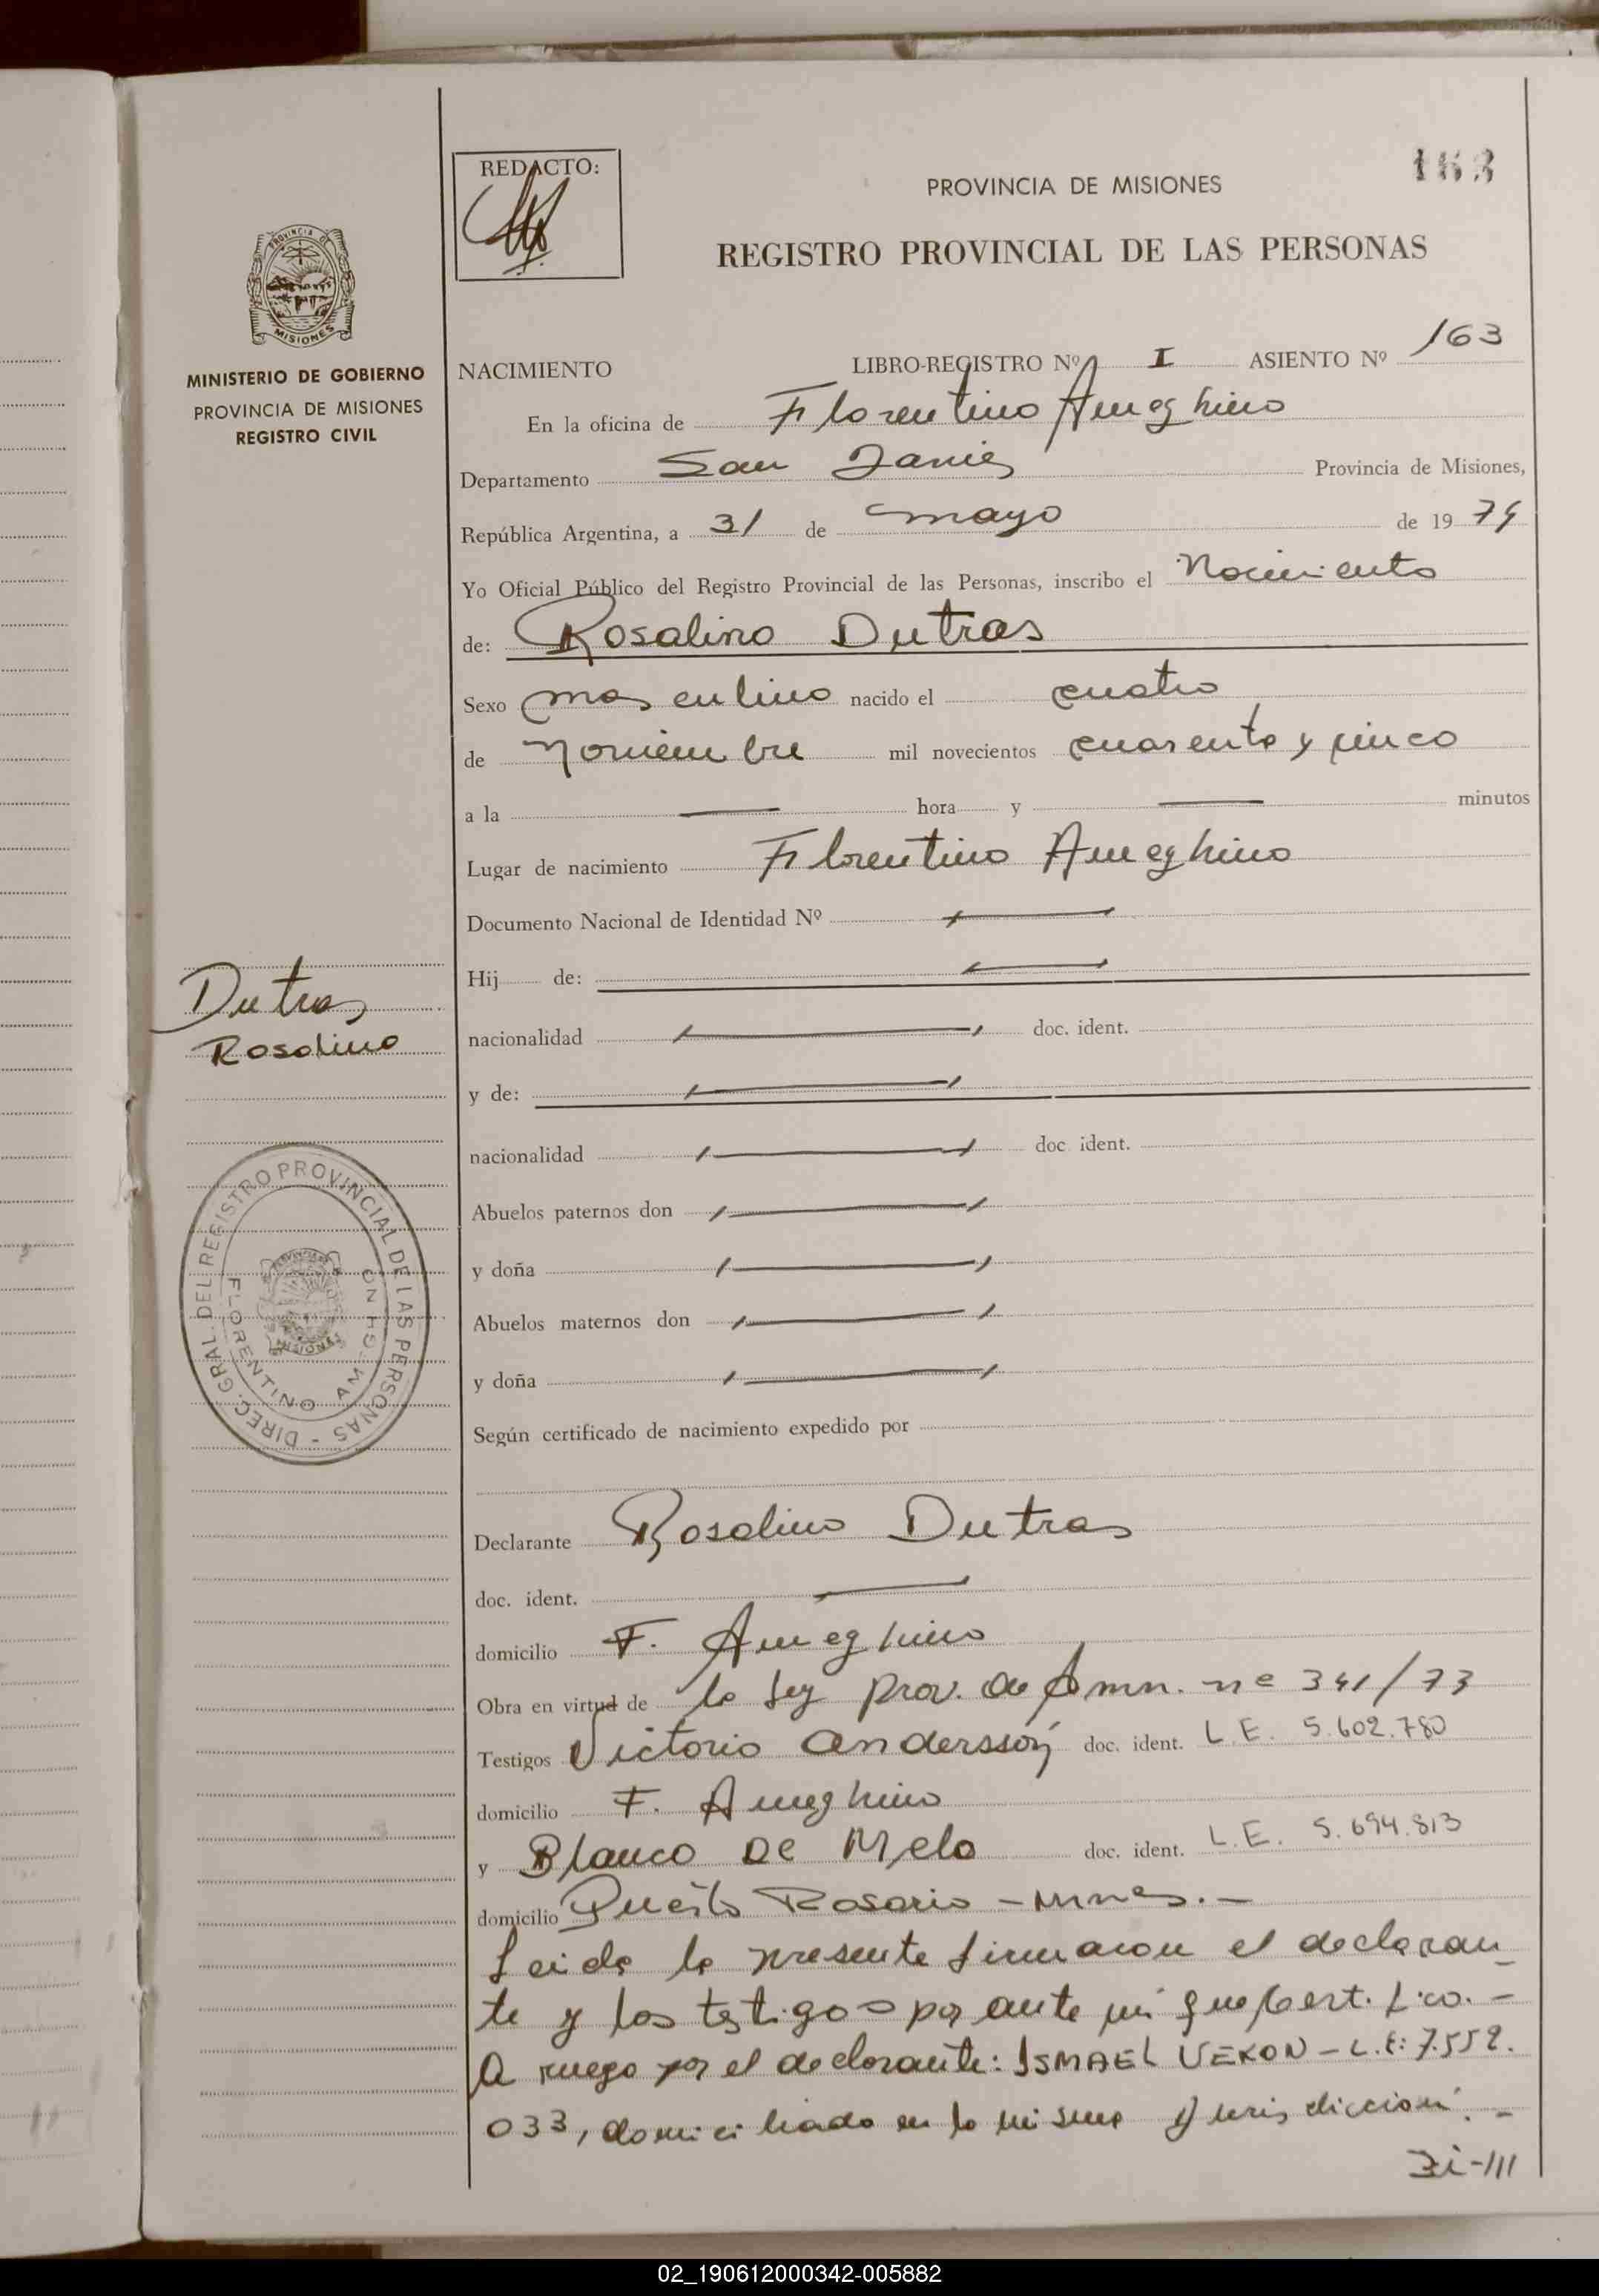 163
REDACTO:
PROVINCIA DE MISIONES
REGISTRO PROVINCIAL DE LAS PERSONAS
PROVINCIA DE
MISIONES
MINISTERIO DE GOBIERNO
PROVINCIA DE MISIONES
REGISTRO CIVIL
NACIMIENTO LIBRO-REGISTRO Nº I ASIENTO Nº 163
En la oficina de Florentino Ameghino
Departamento San Javier Provincia de Misiones,
República Argentina, a 31 de mayo de 19 74
Yo Oficial Público del Registro Provincial de las Personas, inscribo el Nacimiento
de: Rosalino Dutras
Sexo masculino nacido el cuatro
de Noviembre mil novecientos cuarenta y cinco
a la — hora y — minutos
Lugar de nacimiento Florentino Ameghino
Documento Nacional de Identidad Nº —
Hij de: —
nacionalidad — doc. ident.
y de: —
nacionalidad — doc. ident.
Abuelos paternos don —
y doña —
Abuelos maternos don —
y doña —
Según certificado de nacimiento expedido por
Dutras
Rosalino
DIREC. GRAL DEL REGISTRO PROVINCIAL DE LAS PERSONAS -
FLORENTINO AMEGHINO
MISIONES
Declarante Rosalino Dutras
doc. ident. —
domicilio F. Ameghino
Obra en virtud de la Ley prov. de Amn. nº 341/73
Testigos Victorio Andersson doc. ident. L.E. 5.602.780
domicilio F. Ameghino
y Blanco De Melo doc. ident. L.E. 5.694.813
domicilio Puerto Rosario - Mnes. -
Leida la presente firmaron el declaran
te y los testigos por ante mi que Certifico. -
A ruego por el declarante: ISMAEL VEKON - L.E: 7.552.
033, domiciliado en la misma Jurisdiccion. -
02_190612000342-005882